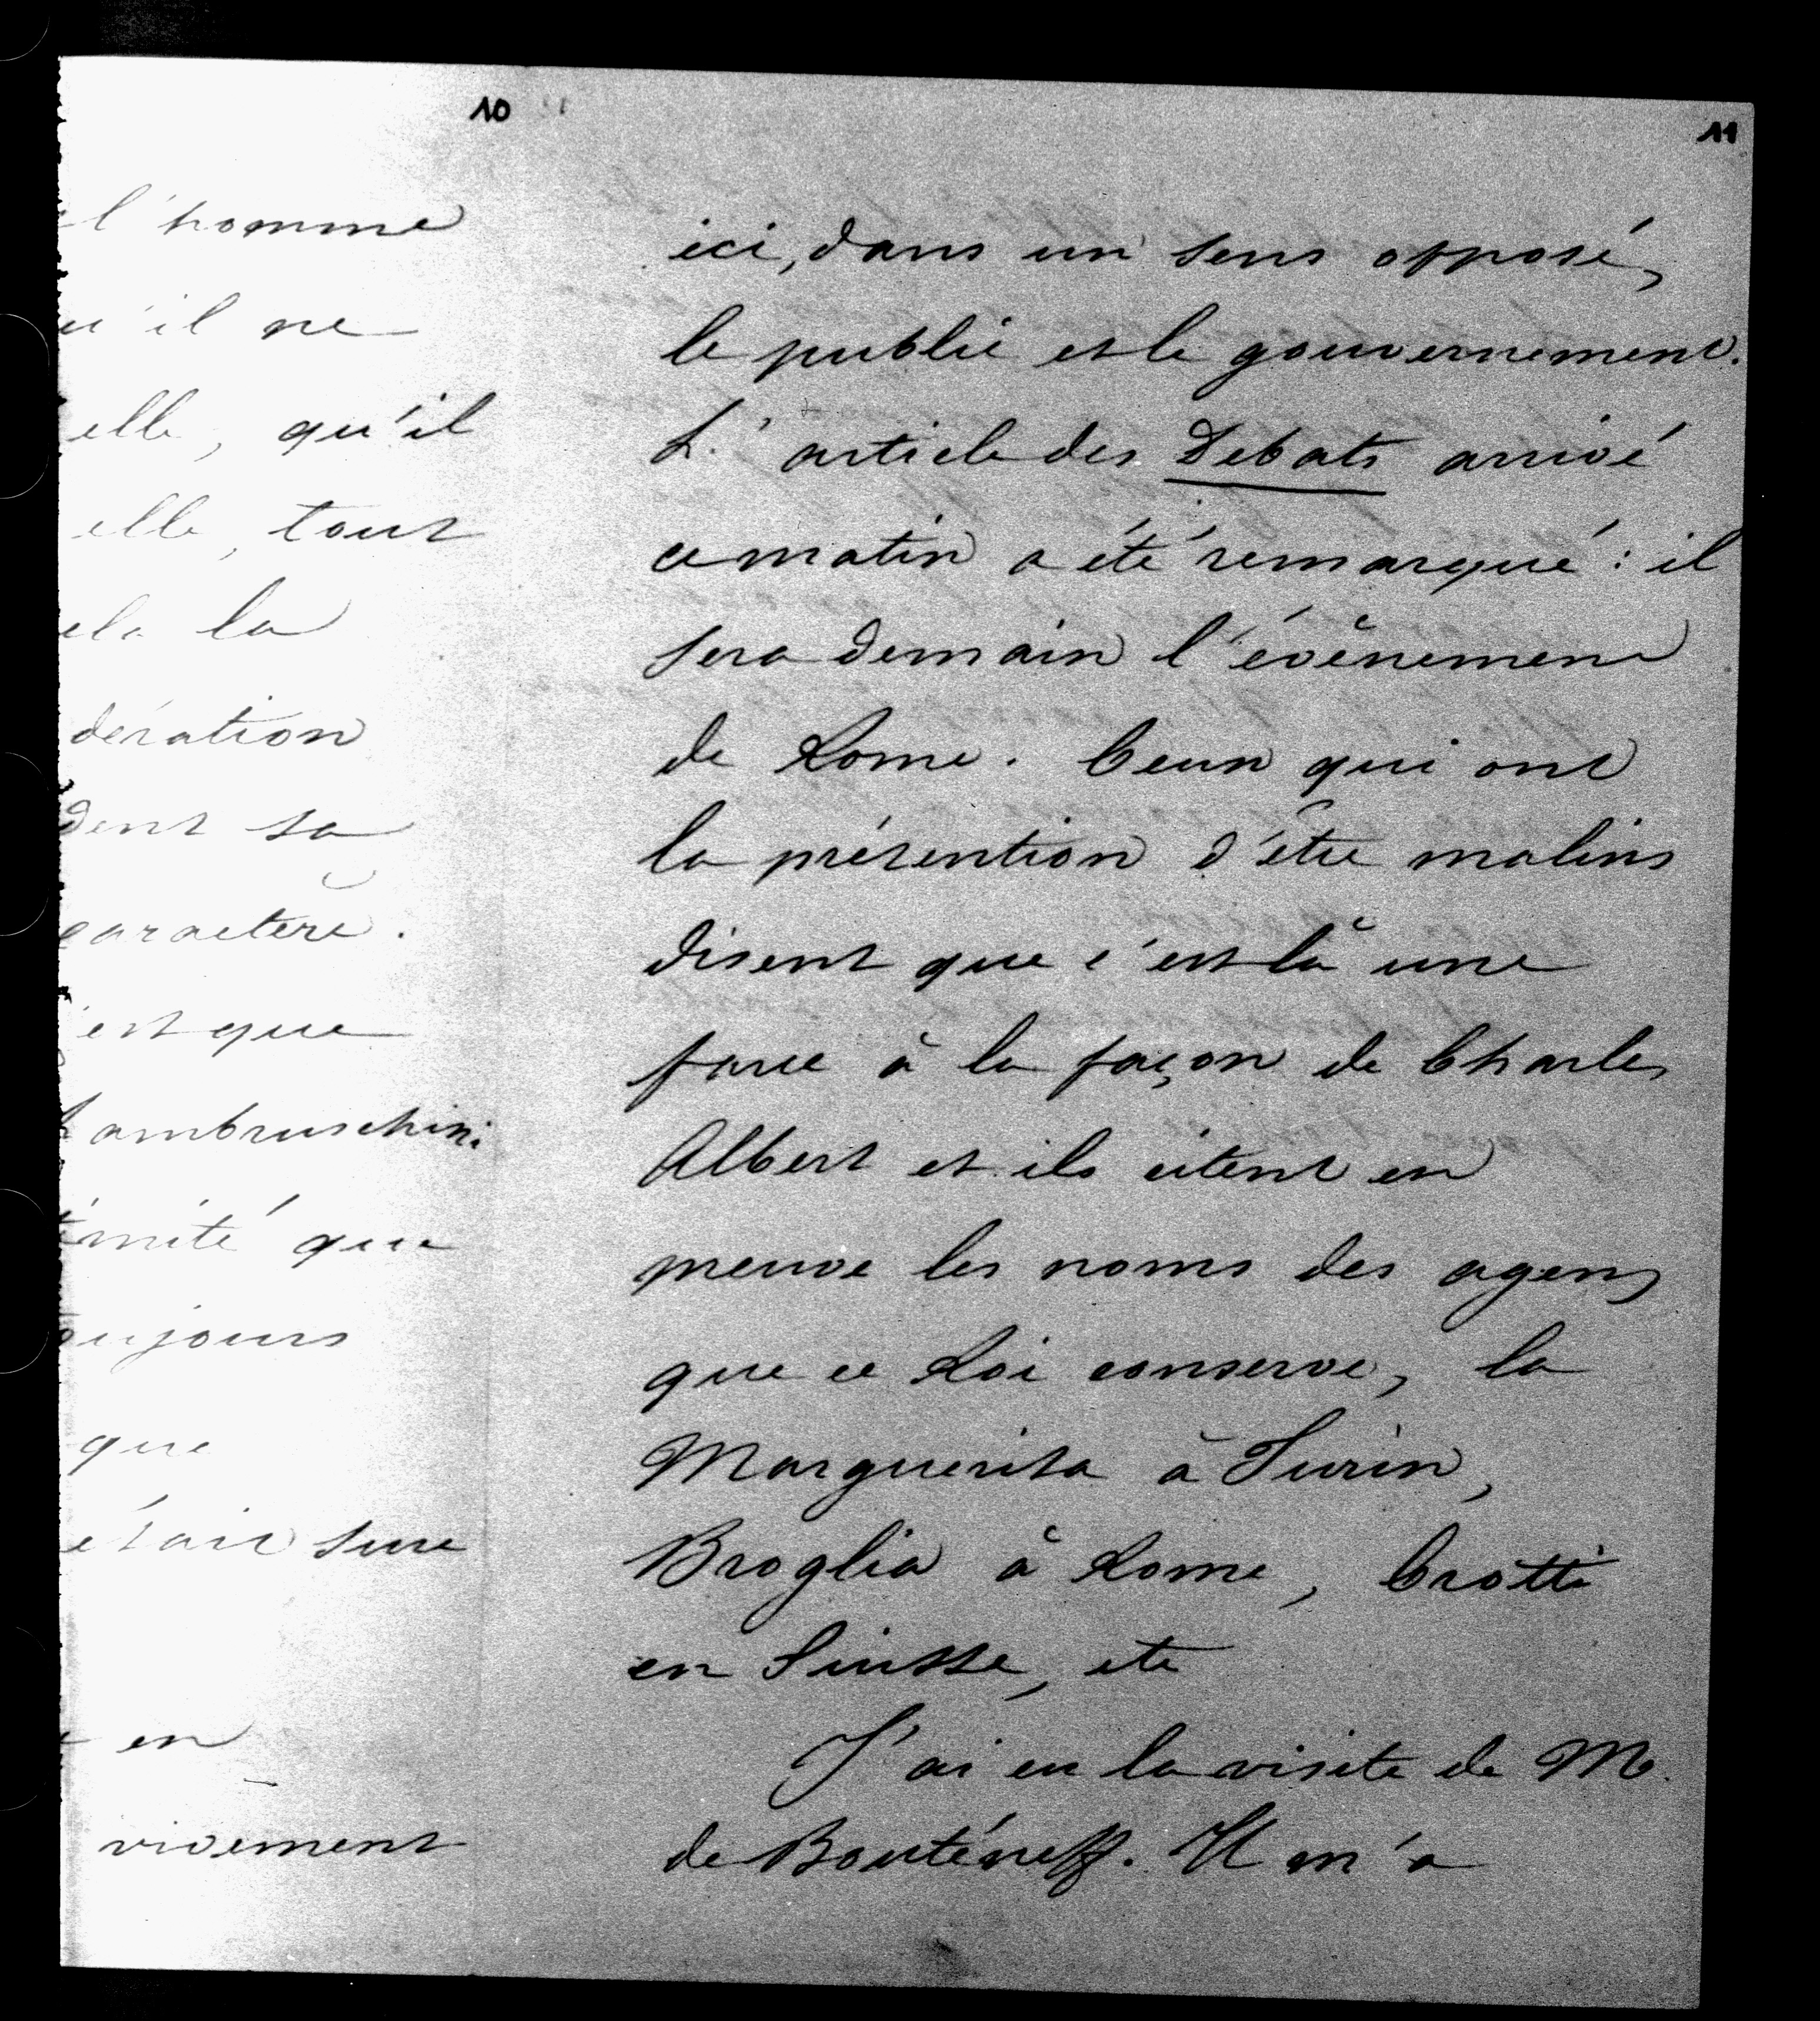 10
l'homme
u'il ne
elle, qu'il
elle, tout
ela la
dération
dent sa
caractère.
'est que
Lambruschini
imité que
oujours
que
était sure
en
vivement
11
ici, dans un sens opposé,
le public et le gouvernement.
L'article des Debats arrivé
ce matin a été remarqué : il
sera demain l'évènement
de Rome. Ceux qui ont
la prétention d'être malins
disent que c'est là une
farce à la façon de Charles
Albert et ils citent en
preuve les noms des agens
que ce Roi conserve, la
Marguerita à Turin,
Broglia à Rome, Crotti
en Suisse, etc
J'ai eu la visite de M.
de Bouténeff. Il m'a